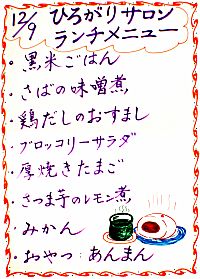 12/9 ひろがりサロン
ランチメニュー
・黒米ごはん
・さばの味噌煮
・鶏だしのおすまし
・ブロッコリーサラダ
・厚焼きたまご
・さつま芋のレモン煮
・みかん
・おやつ:あんまん